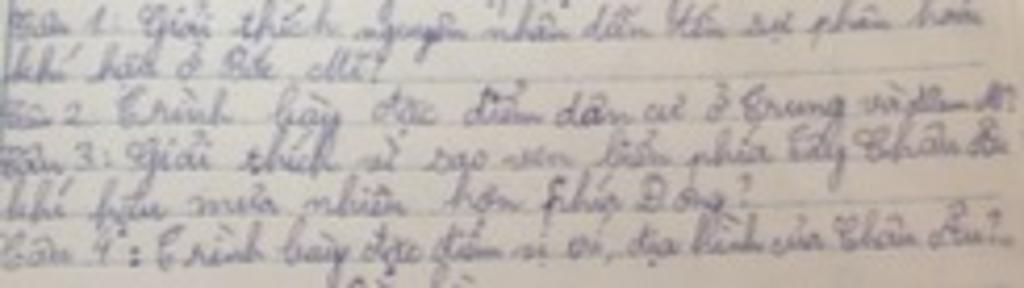 Câu 1: Giải thích nguyên nhân dẫn đến sự phân hoá
khí hậu ở Bắc Mĩ?
Câu 2 Trình bày đặc điểm dân cư ở Trung và Nam Mĩ?
Câu 3: Giải thích vì sao ven biển phía Tây Châu Âu
khí hậu mưa nhiều hơn phía Đông?
Câu 4: Trình bày đặc điểm vị trí, địa hình của Châu Âu?